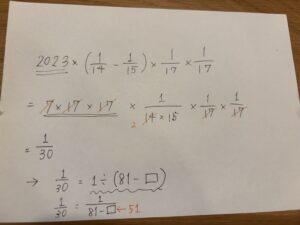 2023 × (1/14 - 1/15) × 1/17 × 1/17
= 7 × 17 × 17 × 1/(14 × 15) × 1/17 × 1/17
2
= 1/30
→ 1/30 = 1 ÷ (81 - □)
1/30 = 1/(81 - □) ← 51